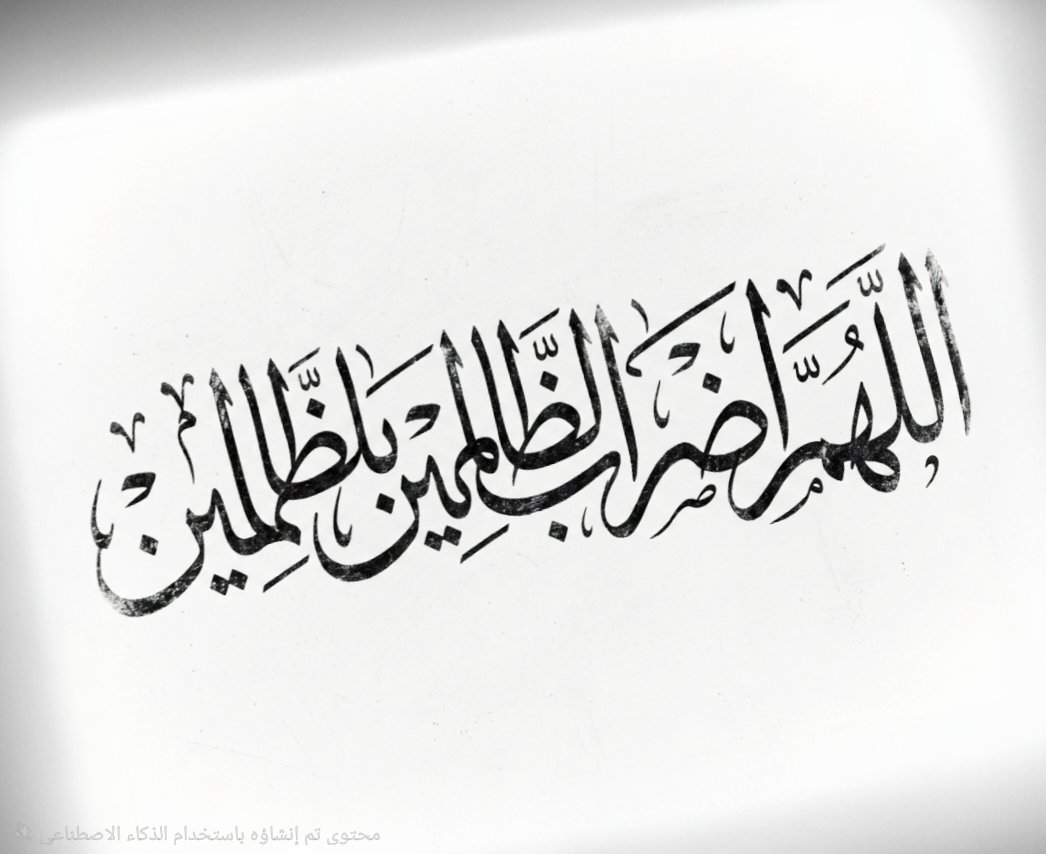 اللَّهُمَّ اضرب الظَّالمين بلظَّالمين
محتوى تم إنشاؤه باستخدام الذكاء الاصطناعي